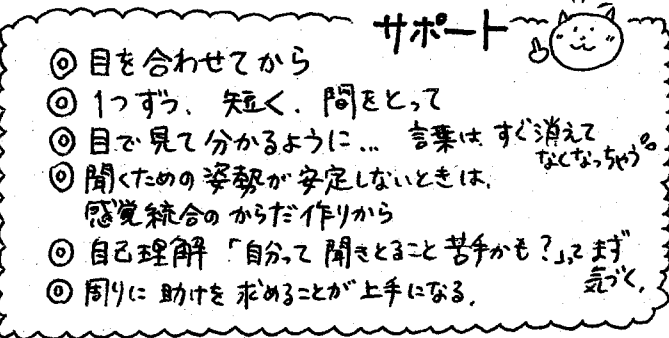 サポート
◎ 目を合わせてから
◎ 1つずつ、短く、間をとって
◎ 目で見て分かるように… 言葉は、すぐ消えて
なくなっちゃう
◎ 聞くための姿勢が安定しないときは、
感覚統合のからだ作りから
◎ 自己理解「自分って聞きとること苦手かも?」ってまず
気づく。
◎ 周りに助けを求めることが上手になる。